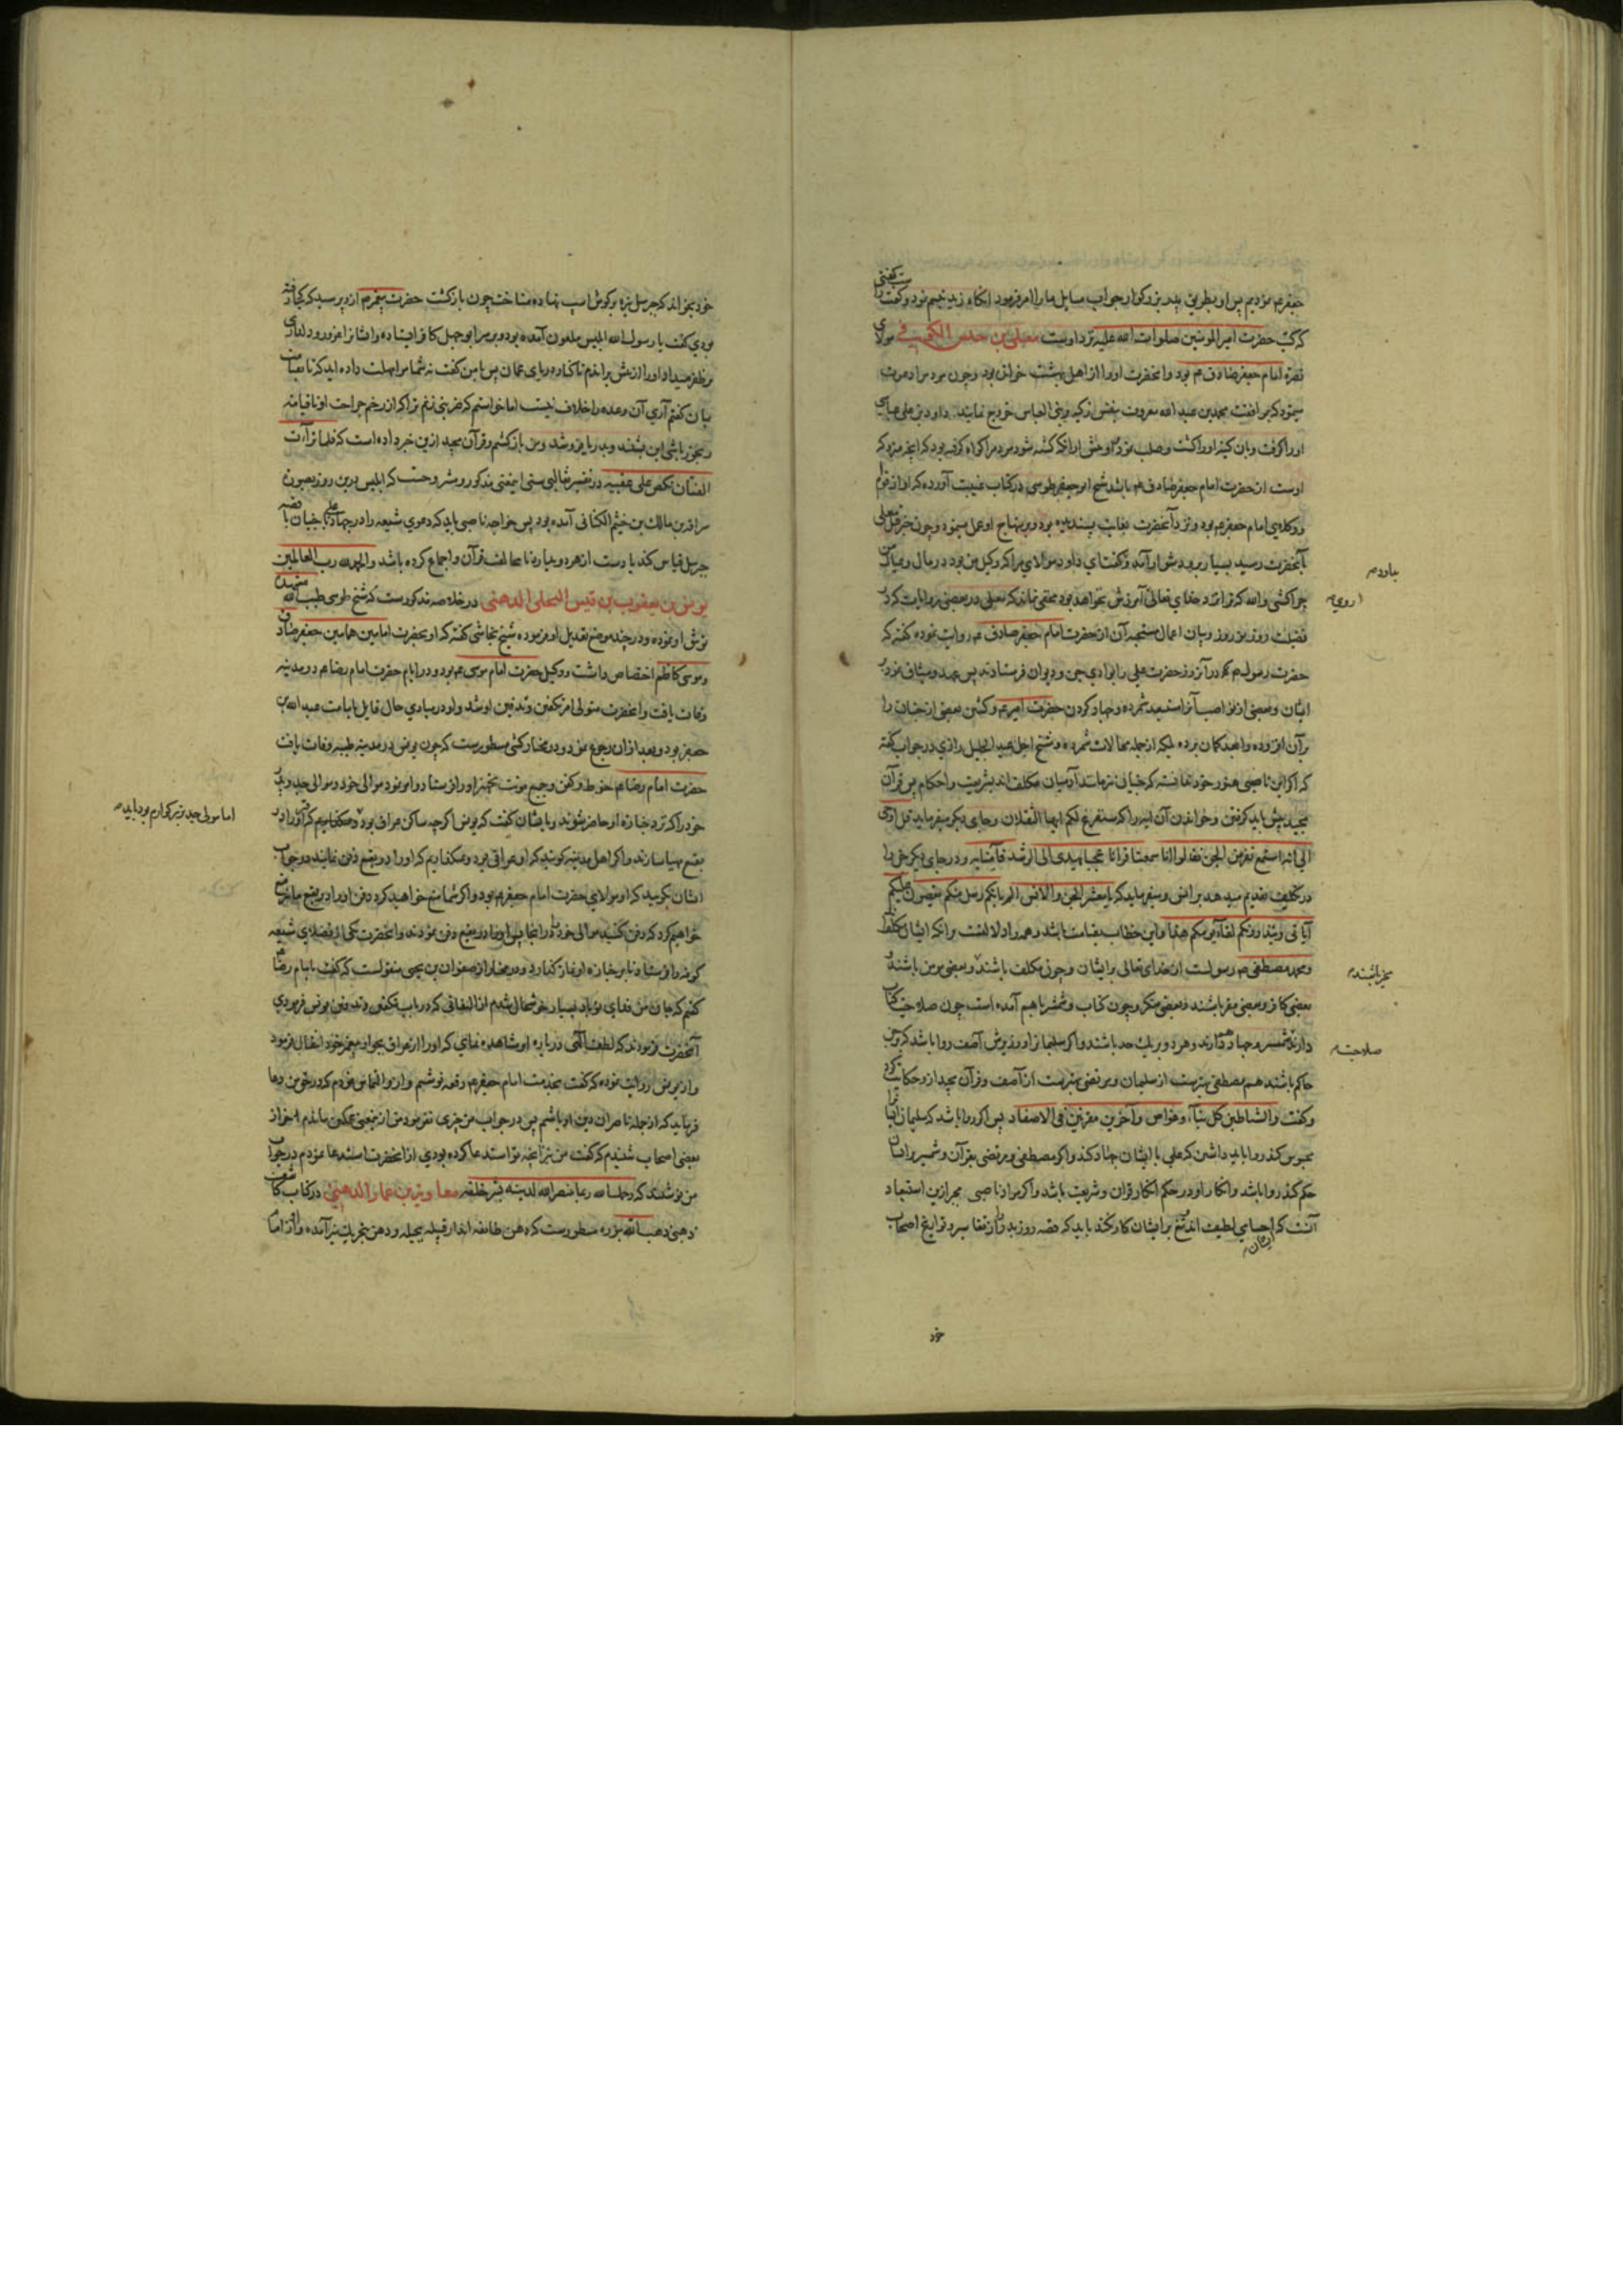 جعفر عم بودیم پس او بطریق پدر بزرگوار جواب مسایل ما را امر فرمود آنگاه زید تبسم نمود و گفت
که کتب حضرت امیر المومنین صلوات الله علیه نزد اوست معلی بن خنیس الکوفی مولای
امام جعفر صادق عم بود و آنحضرت او را از اهل بهشت خوانده بود و چون مردم را دعوت
مینمود که بمرافقت محمد بن عبد الله معروف بنفس زکیه و بنی العباس خروج نمایند داود بن علی عباسی
او را گرفت و بآن کینه او را کشت و صلب نمود و پیش از آنکه کشته شود مردم را گواه گرفته بود که آنچه مرد که
اوست از حضرت امام جعفر صادق عم باشد شیخ ابو جعفر طوسی در کتاب غیبت آورده که او از قوام
و وکلای امام جعفر عم بود و نزد آنحضرت بغایت پسندیده بود و بر منهاج او عمل مینمود و چون خبر قتل معلی
بآنحضرت رسید بسیار برو دشوار آمد و گفت ای داود مولای مرا که وکیل من بود در مال و عیال من
چرا کشتی والله که ترا نزد خدای تعالی آبروئی نخواهد بود مخفی نماند که معلی در بعضی روایات که در
فضیلت روز نوروز و بیان اعمال مستحبه آن از حضرت امام جعفر صادق عم روایت نموده گفته که
حضرت رسول صلعم در آن روز حضرت علی را بوادی جن و دیوان فرستادند پس عهد و میثاق نمود بر
ایشان و بعضی از نواصب آنرا مستبعد شمرده و جهاد کردن حضرت امیر عم و کشتن بعضی از جنیان را
بر آن افزوده و بعید گمان برده بلکه از جمله محالات شمرده و شیخ اجل عبد الجلیل رازی در جواب گفته
که اگر این ناصبی هنوز خود ندانسته که جنیان نیز مانند آدمیان مکلف اند بشریعت و احکام پس قرآن
مجید پیش باید گرفتن و خواندن آن آیه را که سنفرغ لکم ایها الثقلان و جای دیگر میفرماید قل اوحی
الی انه استمع نفر من الجن فقالوا انا سمعنا قرانا عجبا یهدی الی الرشد فآمنا به و در جای دیگر جن را
در تکلیف تقدیم میدهد بر انس و میفرماید که یا معشر الجن و الانس الم یاتکم رسل منکم یقصون علیکم
آیاتی و ینذرونکم لقاء یومکم هذا و این خطاب بقیامت باشد و همه را دلالتست بر آنکه ایشان مکلفند
و محمد مصطفی صم رسولست از خدای تعالی بر ایشان و چون مکلف باشند و بعضی مؤمن باشند و
بعضی کافر و بعضی مقر باشند و بعضی منکر و چون کتاب و شمشیر با هم آمده است چون صلاحیت کتاب
دارند شمشیر و جهاد هم دارند و هر دو بر یک حد باشند و اگر سلیمان را و وزیرش آصف روا باشد که بر جن
حاکم باشند هم مصطفی بهترست از سلیمان و مرتضی بهترست از آصف و قرآن مجید ازو حکایت کرد
و گفت و الشیاطین کل بناء و غواص و آخرین مقرنین فی الاصفاد پس اگر روا باشد که سلیمان ایشانرا
محبوس کند روا باید داشتن که علی با ایشان جهاد کند و اگر مصطفی و مرتضی بقرآن و شمشیر بر ایشان
حکم کند روا باشد و انکار او در حکم انکار قرآن و شریعت باشد و اگر مراد ناصبی بجز ازین استبعاد
آنست که اجسامی لطیف اند تیغ بر ایشان کار نکند باید که قصه روز بدر را از تفاسیر و تواریخ اصحاب
ایشان
بیاورده
ا روی
بخر باشند
صلاحیت
خود
خود بخواند که جبرئیل نیزه بر گوش اسپ نهاده متاخت چون بازگشت حضرت پیغمبر عم ازو پرسید که کجا رفته
بودی گفت یا رسول الله ابلیس ملعون آمده بود و بر سر ابوجهل کافر ایستاده و ایشانرا غرور و دلداری
و ظفر میداد او را از پیش براندم تا کناره دریای عمان پس با من گفت نه شما مرا مهلت داده اید که تا بقیامت
بمان گفتم آری آن وعده را خلاف نیست اما خواستم که ضربتی زنم ترا که از زخم جراحت او تا قیامت
رنجور باشی این بشنید و بدریا فرو شد و من بازگشتم و قرآن مجید ازین خبر داده است که فلما تراءت
الفئتان نکص علی عقبیه در تفسیر ثعالبی سنی اینمعنی مذکور و مشروحست که ابلیس درین روز بصورت
سراقة بن مالک بن خثیم الکنانی آمده بود پس خواجه ناصبی باید که دعوی شیعه را در جهاد علی با جنیان با قصه
جبرئیل قیاس کند یا دست از هر دو بدارد تا مخالفت قرآن و اجماع کرده باشد و الحمد لله رب العالمین
یونس بن یعقوب بن قیس البجلی الدهنی در خلاصه مذکورست که شیخ طوسی طیب الله مشهده
توثیق او نموده و در چند موضع تعدیل او فرموده شیخ نجاشی گفته که او بحضرت امامین همامین جعفر صادق
و موسی کاظم اختصاص داشت و وکیل حضرت امام موسی عم بود و در ایام حضرت امام رضا عم در مدینه
وفات یافت و آنحضرت متولی امر تکفین و تدفین او شد و او در مبادی حال قایل بامامت عبد الله بن
جعفر بود و بعد از آن رجوع نمود و در مختار کشی مسطورست که چون یونس در مدینه طیبه وفات یافت
حضرت امام رضا عم حنوط و کفن و جمیع مؤنت تجهیز او را فرستاد و امر نمود موالی خود و موالی جد و پدر
خود را که نزد جنازه او حاضر شوند و بایشان گفت که یونس اگر چه ساکن عراق بود
بقیع مهیا سازند و اگر اهل مدینه گویند که او عراقی بود و نمیگذاریم که او را در بقیع دفن نمایند در جواب
ایشان بگویید که او مولای حضرت امام جعفر عم بود و اگر شما منع خواهید کرد دفن او را در بقیع ما نیز منع
خواهیم کرد که دفن کنید موالی خود را در آنجا پس او را در بقیع دفن نمودند و آنحضرت یکی از فضلای شیعه
کوفه را فرستاد تا بر جنازه او نماز گذارد و در مختار از صفوان بن یحیی منقولست که گفت بامام رضا عم
گفتم که جان من فدای تو باد بسیار خوشحال شدم از التفاتی که در باب تکفین و تدفین یونس فرمودی
آنحضرت فرمودند که لطف الهی درباره او مشاهده نمای که او را از عراق بجوار پیغمبر خود انتقال فرمود
و از یونس روایت نموده که گفت بخدمت امام جعفر عم رقعه نوشتم و ازو التماس نمودم که در حق من دعا
فرماید که از جمله ناصران دین او باشم پس در جواب من چیزی نفرمود من ازینمعنی غمگین ماندم آخر از
بعضی اصحاب شنیدم که گفت من نیز آنچه تو استدعا کرده بودی از آنحضرت استدعا نمودم در جواب
من نوشتند که رحمک الله انما ینتصر الله لدینه بشر خلقه معاویة بن عمار الدهنی در کتاب کاشف
ذهبی مسطورست که دهن طایفه اند از قبیله بجیله و دهن بتحریک نیز آمده و او از اماثل
اما مولی جد بزرگوارم بود باید